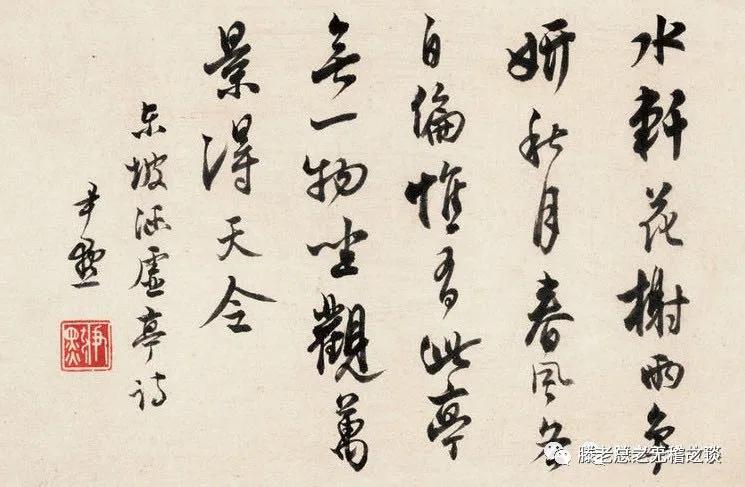 水軒花榭兩争
妍秋月春風各
自偏惟有此亭
無一物坐觀萬
景得天全
东坡涵虚亭诗
尹默
尹默
滕老总之无稽之谈